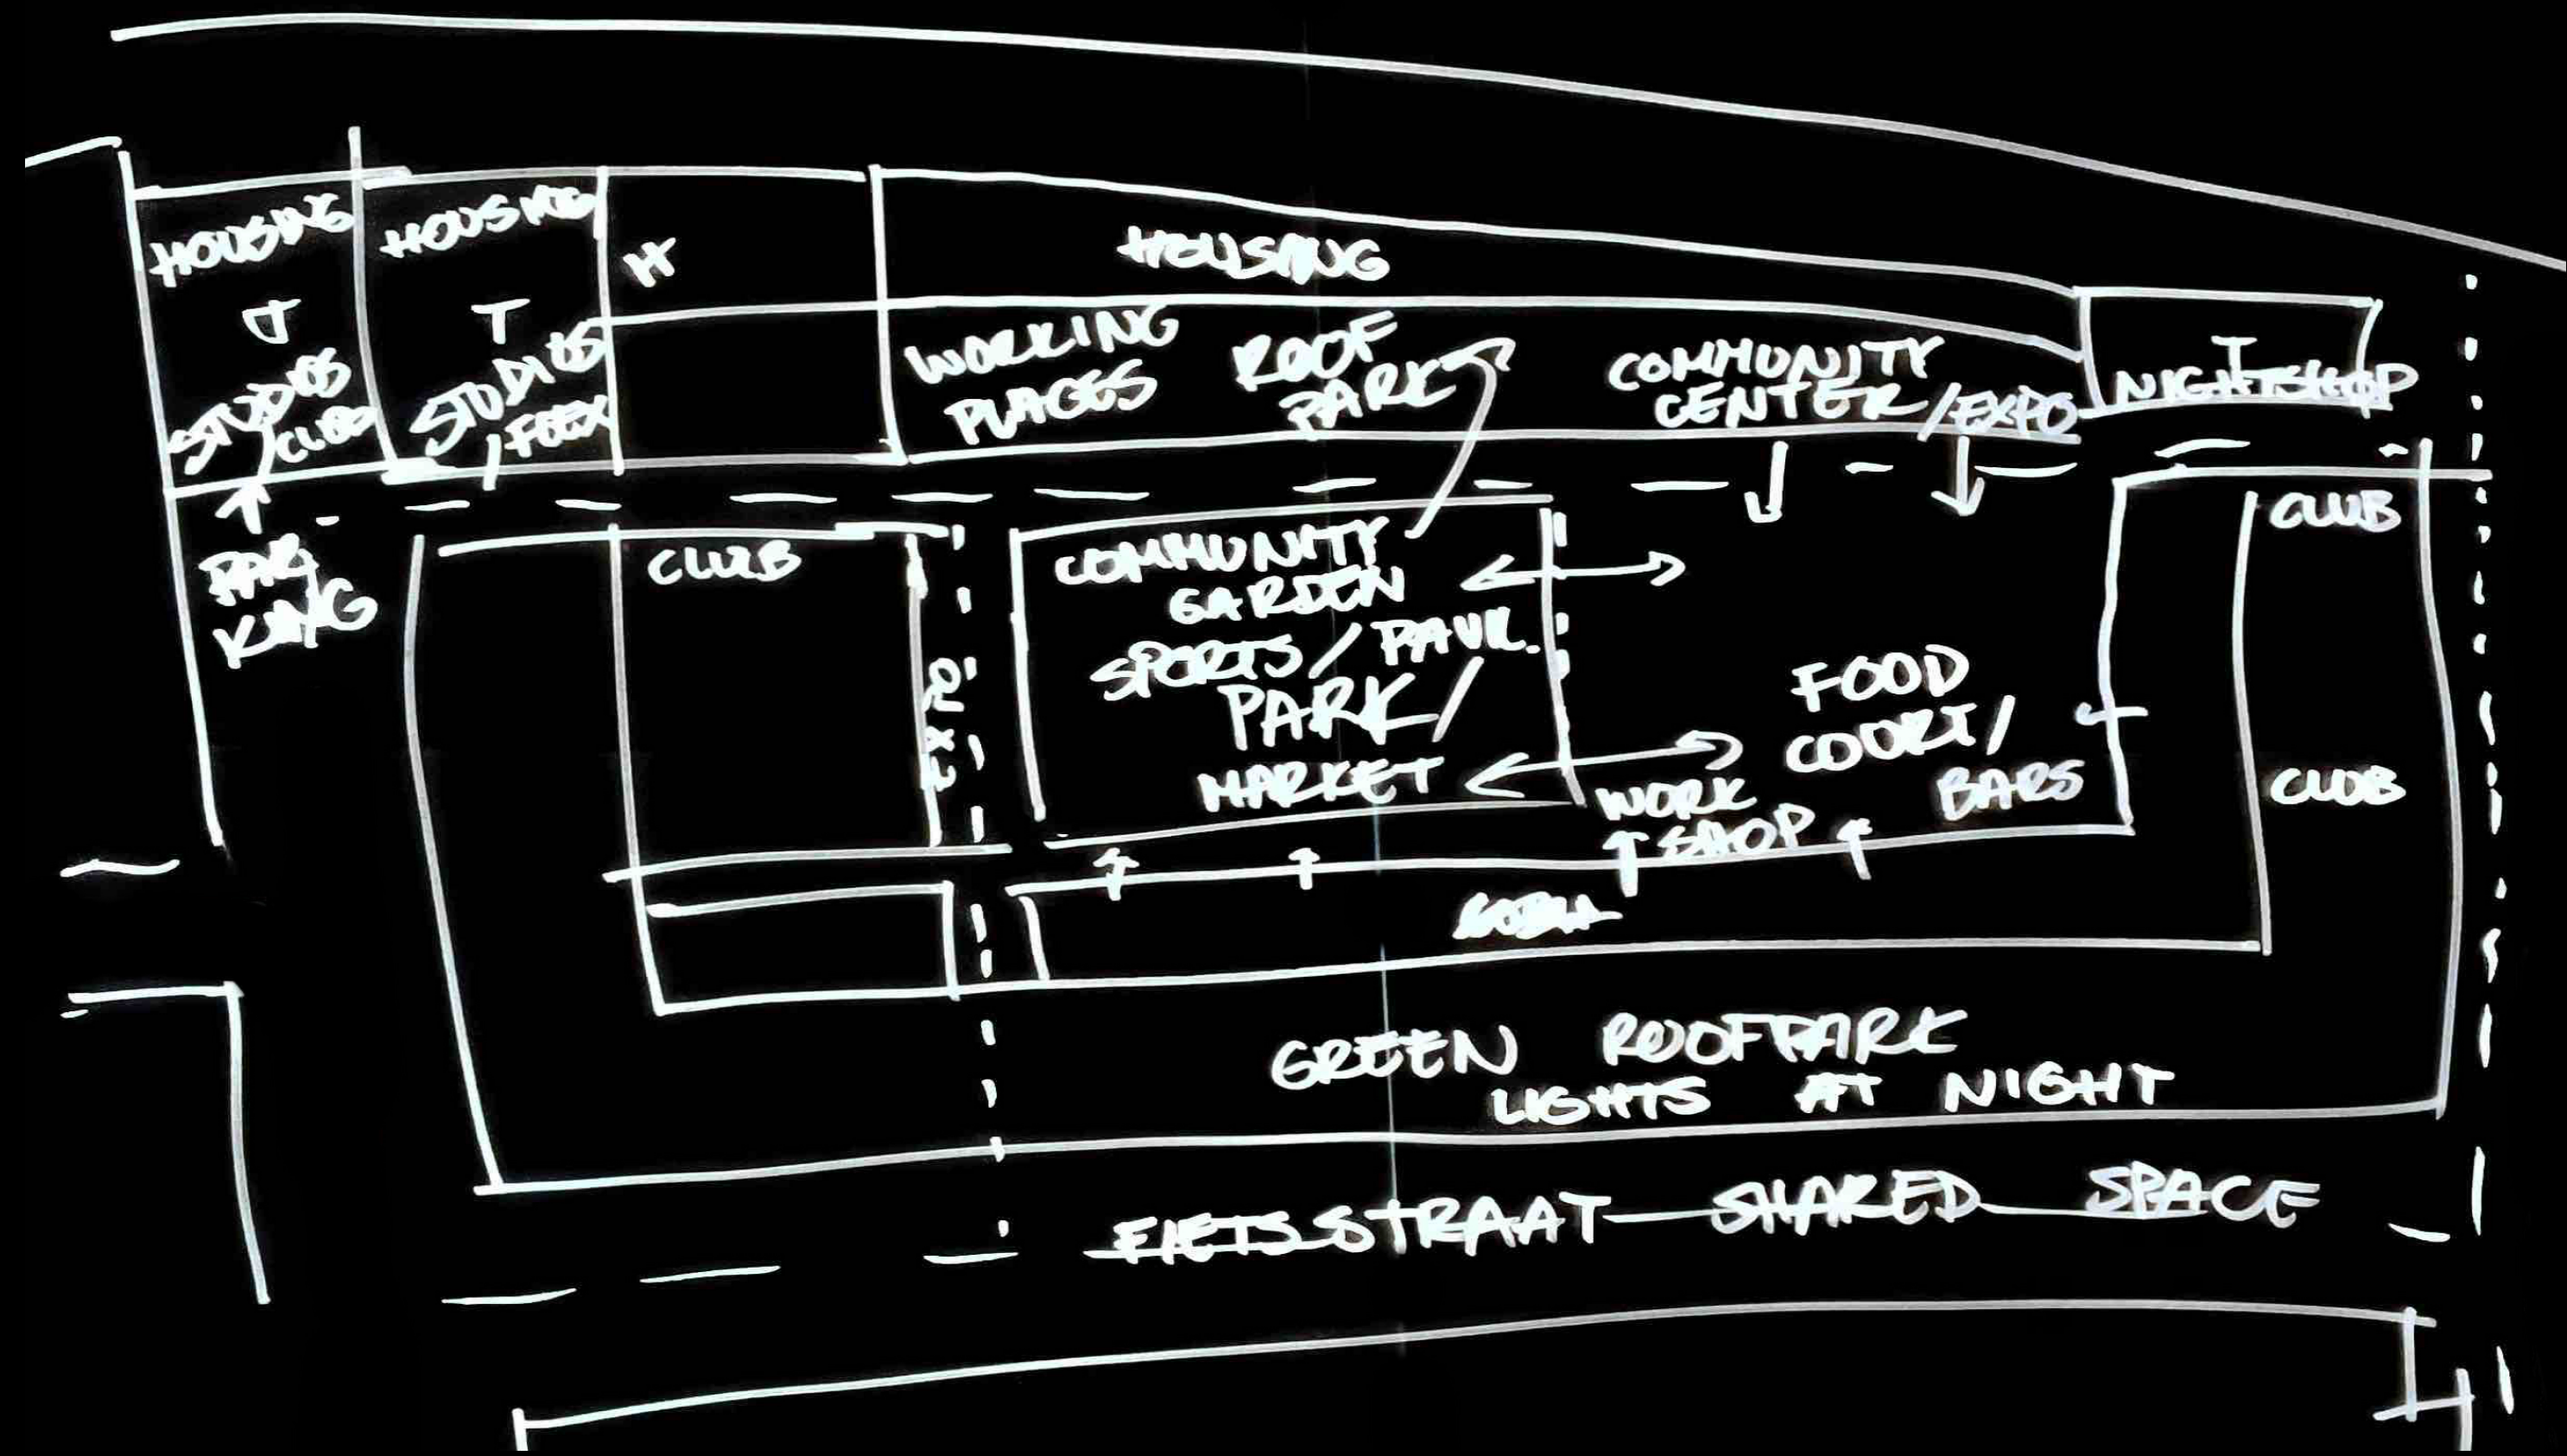 HOUSING
STUDIOS
/CLUB
HOUSING
T
STUDIOS
/FLEX
H
HOUSING
WORKING
PLACES
ROOF
PARK
COMMUNITY
CENTER/EXPO
T
NIGHTSHOP
PAR
KING
CLUB
COMMUNITY
GARDEN
SPORTS/PAVIL.
PARK/
MARKET
FOOD
COURT/
BARS
WORK
SHOP
CLUB
CLUB
GREEN ROOFPARK
LIGHTS AT NIGHT
FIETSSTRAAT SHARED SPACE